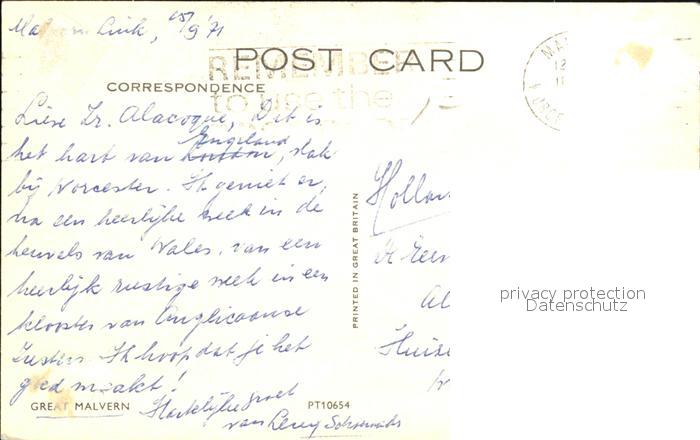 Malvern Link, 15/9 '71
REMEMBER
to use the
POST CARD
CORRESPONDENCE
Lieve Zr. Alacoque, Dit is
Engeland
het hart van London, vlak
bij Worcester. Ik geniet er,
na een heerlijke week in de
heuvels van Wales, van een
heerlijk rustige week in een
klooster van Anglicaanse
Zusters. Ik hoop dat je het
goed maakt!
Hartelijke groet
van Leny
GREAT MALVERN
PT10654
PRINTED IN GREAT BRITAIN
MA
Hollan
Al
Huise
privacy protection
Datenschutz